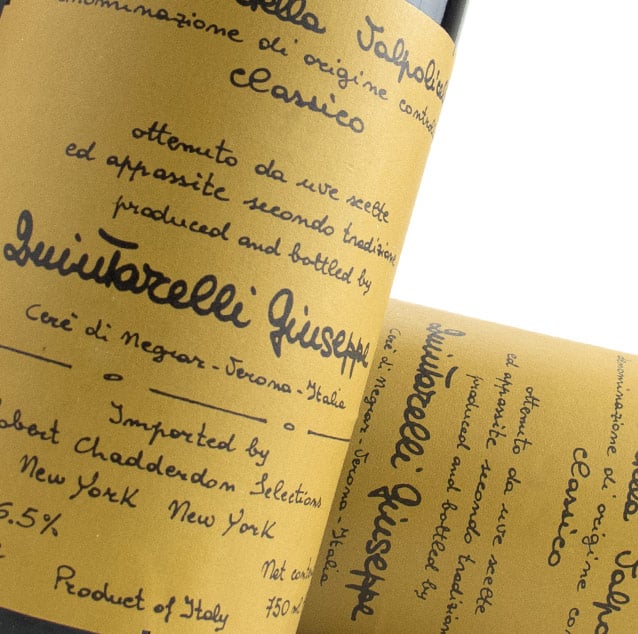 Valpolicella
denominazione di origine controllata
classico
ottenuto da uve scelte
ed appassite secondo tradizione
produced and bottled by
Quintarelli Giuseppe
Cerè di Negrar - Verona - Italia
Imported by
Robert Chadderdon Selections
New York New York
6.5%
Net
Product of Italy
750
classico
ottenuto da uve scelte
ed appassite secondo tradizione
produced and bottled by
Quintarelli Giuseppe
Cerè di Negrar - Verona - Italia